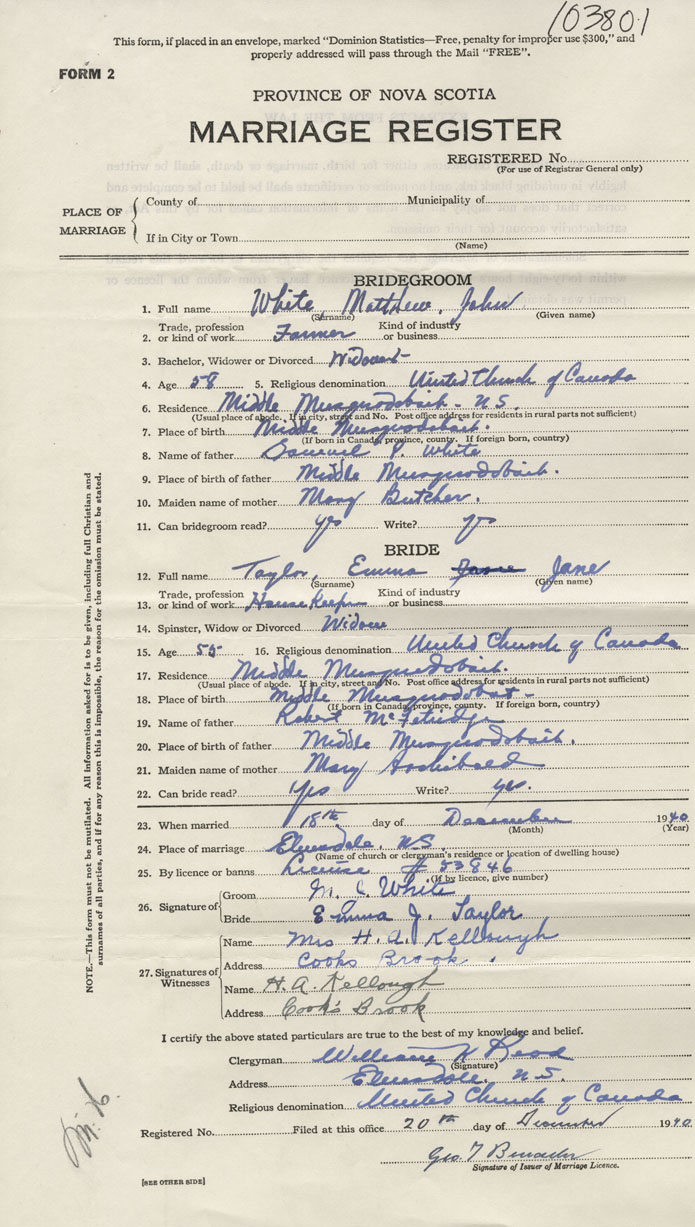 103801
This form, if placed in an envelope, marked "Dominion Statistics—Free, penalty for improper use $300," and
properly addressed will pass through the Mail "FREE".
FORM 2
PROVINCE OF NOVA SCOTIA
MARRIAGE REGISTER
REGISTERED No.
(For use of Registrar General only)
PLACE OF MARRIAGE
County of Municipality of
If in City or Town
(Name)
BRIDEGROOM
1. Full name White, Matthew, John
(Surname) (Given name)
2. Trade, profession or kind of work Farmer Kind of industry or business
3. Bachelor, Widower or Divorced
4. Age 58 5. Religious denomination United Church of Canada
6. Residence Middle Musquodoboit - N.S.
(Usual place of abode. If in city, street and No. Post office address for residents in rural parts not sufficient)
7. Place of birth Middle Musquodoboit.
(If born in Canada, province, county. If foreign born, country)
8. Name of father Samuel P. White
9. Place of birth of father Middle Musquodoboit.
10. Maiden name of mother Mary Butcher.
11. Can bridegroom read? yes Write? yes
BRIDE
12. Full name Taylor, Emma Jane Jane
(Surname) (Given name)
13. Trade, profession or kind of work House Keeper Kind of industry or business
14. Spinster, Widow or Divorced Widow
15. Age 55 16. Religious denomination United Church of Canada
17. Residence Middle Musquodoboit.
(Usual place of abode. If in city, street and No. Post office address for residents in rural parts not sufficient)
18. Place of birth Middle Musquodoboit -
(If born in Canada, province, county. If foreign born, country)
19. Name of father Robert McFetridge
20. Place of birth of father Middle Musquodoboit.
21. Maiden name of mother Mary Archibald
22. Can bride read? Yes Write? yes.
23. When married 18th day of December 1940
(Month) (Year)
24. Place of marriage Elmsdale, N.S.
(Name of church or clergyman's residence or location of dwelling house)
25. By licence or banns License # 53846
(If by licence, give number)
26. Signature of
Groom M. J. White
Bride Emma J. Taylor
27. Signatures of Witnesses
Name Mrs H. A. Kellough
Address Cooks Brook.
Name H. A. Kellough
Address Cook's Brook
I certify the above stated particulars are true to the best of my knowledge and belief.
Clergyman William K Read
(Signature)
Address Elmsdale, N.S.
Religious denomination United Church of Canada
Registered No. Filed at this office 20th day of December 1940
Geo. T
Signature of Issuer of Marriage Licence.
[SEE OTHER SIDE]
NOTE.—This form must not be mutilated. All information asked for is to be given, including full Christian and
surnames of all parties, and if for any reason this is impossible, the reason for the omission must be stated.